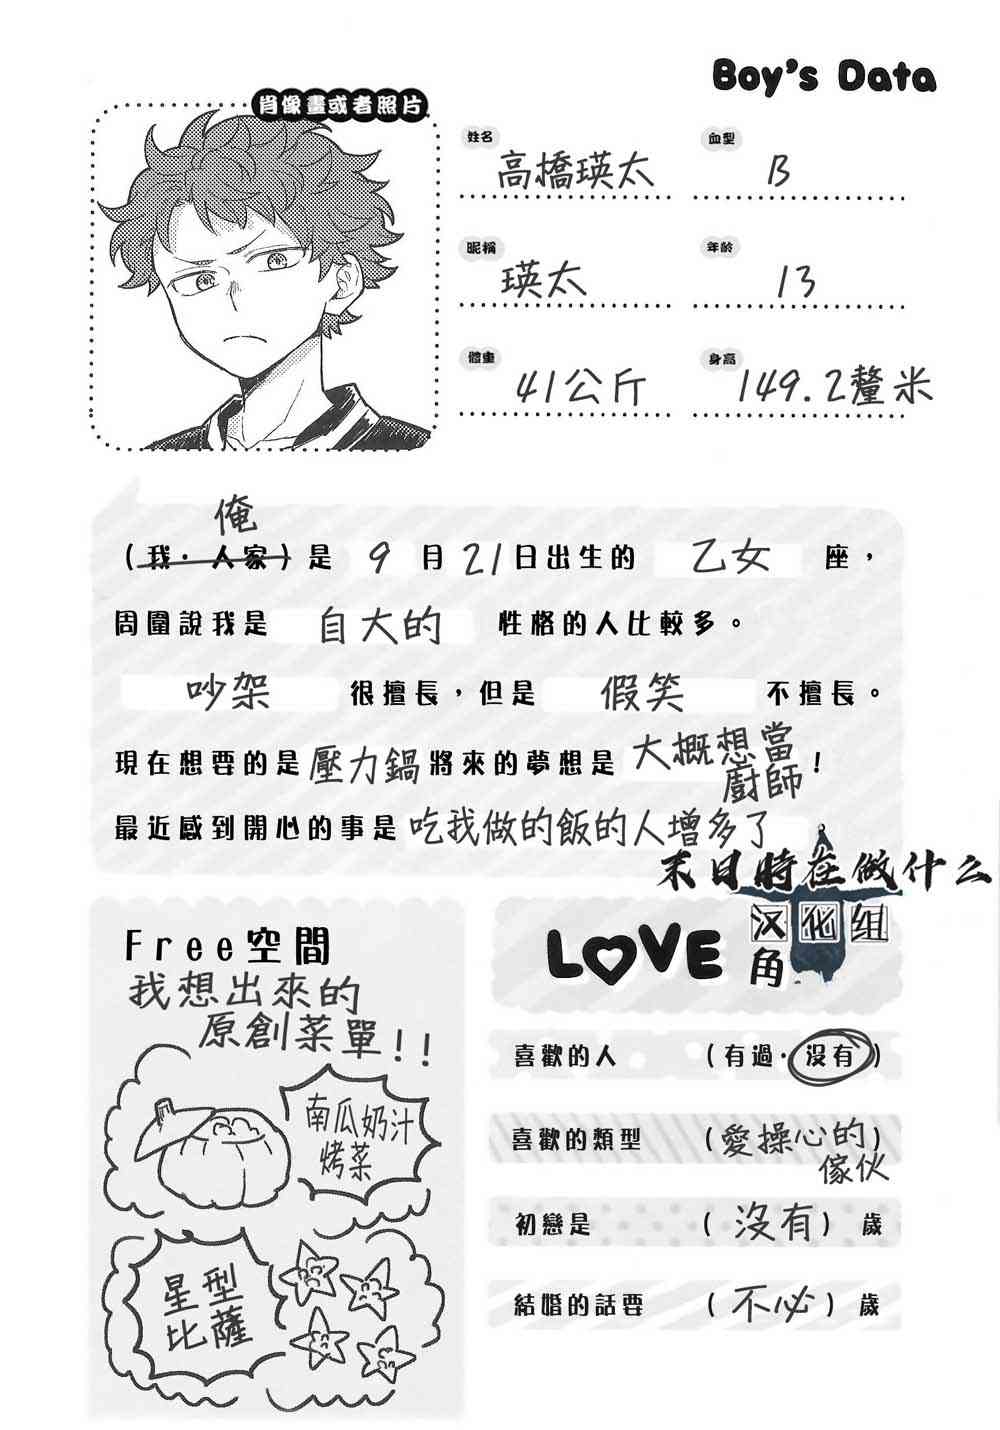 Boy's Data
肖像畫或者照片
姓名
高橋瑛太
血型
B
昵稱
瑛太
年龄
13
體重
41公斤
身高
149.2釐米
俺
(我·人家)是 9 月 21 日出生的 乙女 座，
周圍說我是 自大的 性格的人比較多。
吵架 很擅長，但是 假笑 不擅長。
現在想要的是 壓力鍋 將來的夢想是 大概想當
廚師 !
最近感到開心的事是 吃我做的飯的人增多了
末日時在做什么
汉化组
角.
Free空間
我想出來的
原創菜單!!
南瓜奶汁
烤菜
星型
比薩
LOVE
喜歡的人 (有過·沒有)
喜歡的類型 (愛操心的)
傢伙
初戀是 (沒有) 歲
結婚的話要 (不必) 歲